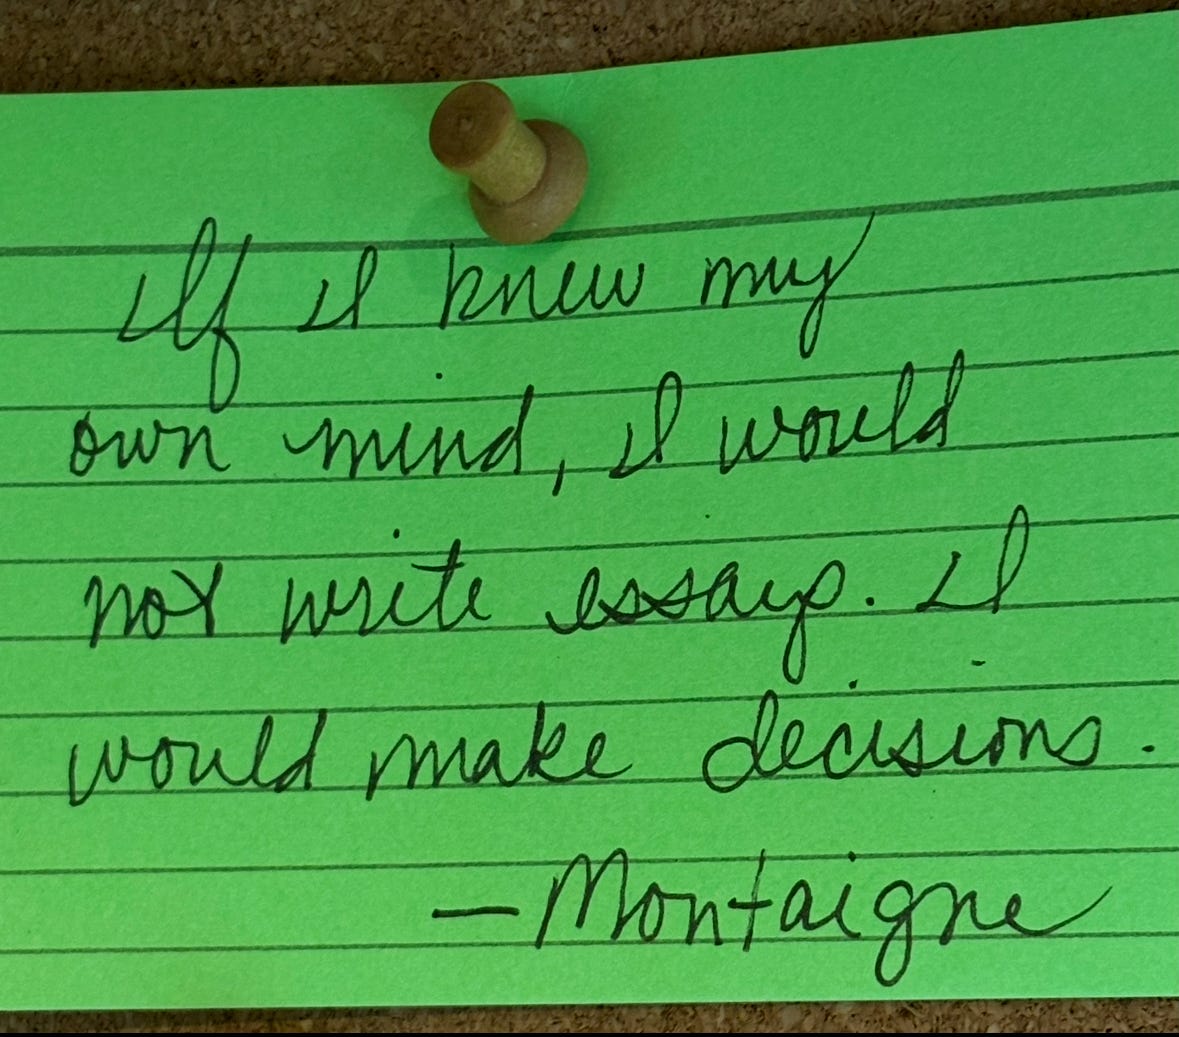 If I knew my
own mind, I would
not write essays. I
would make decisions.
—Montaigne